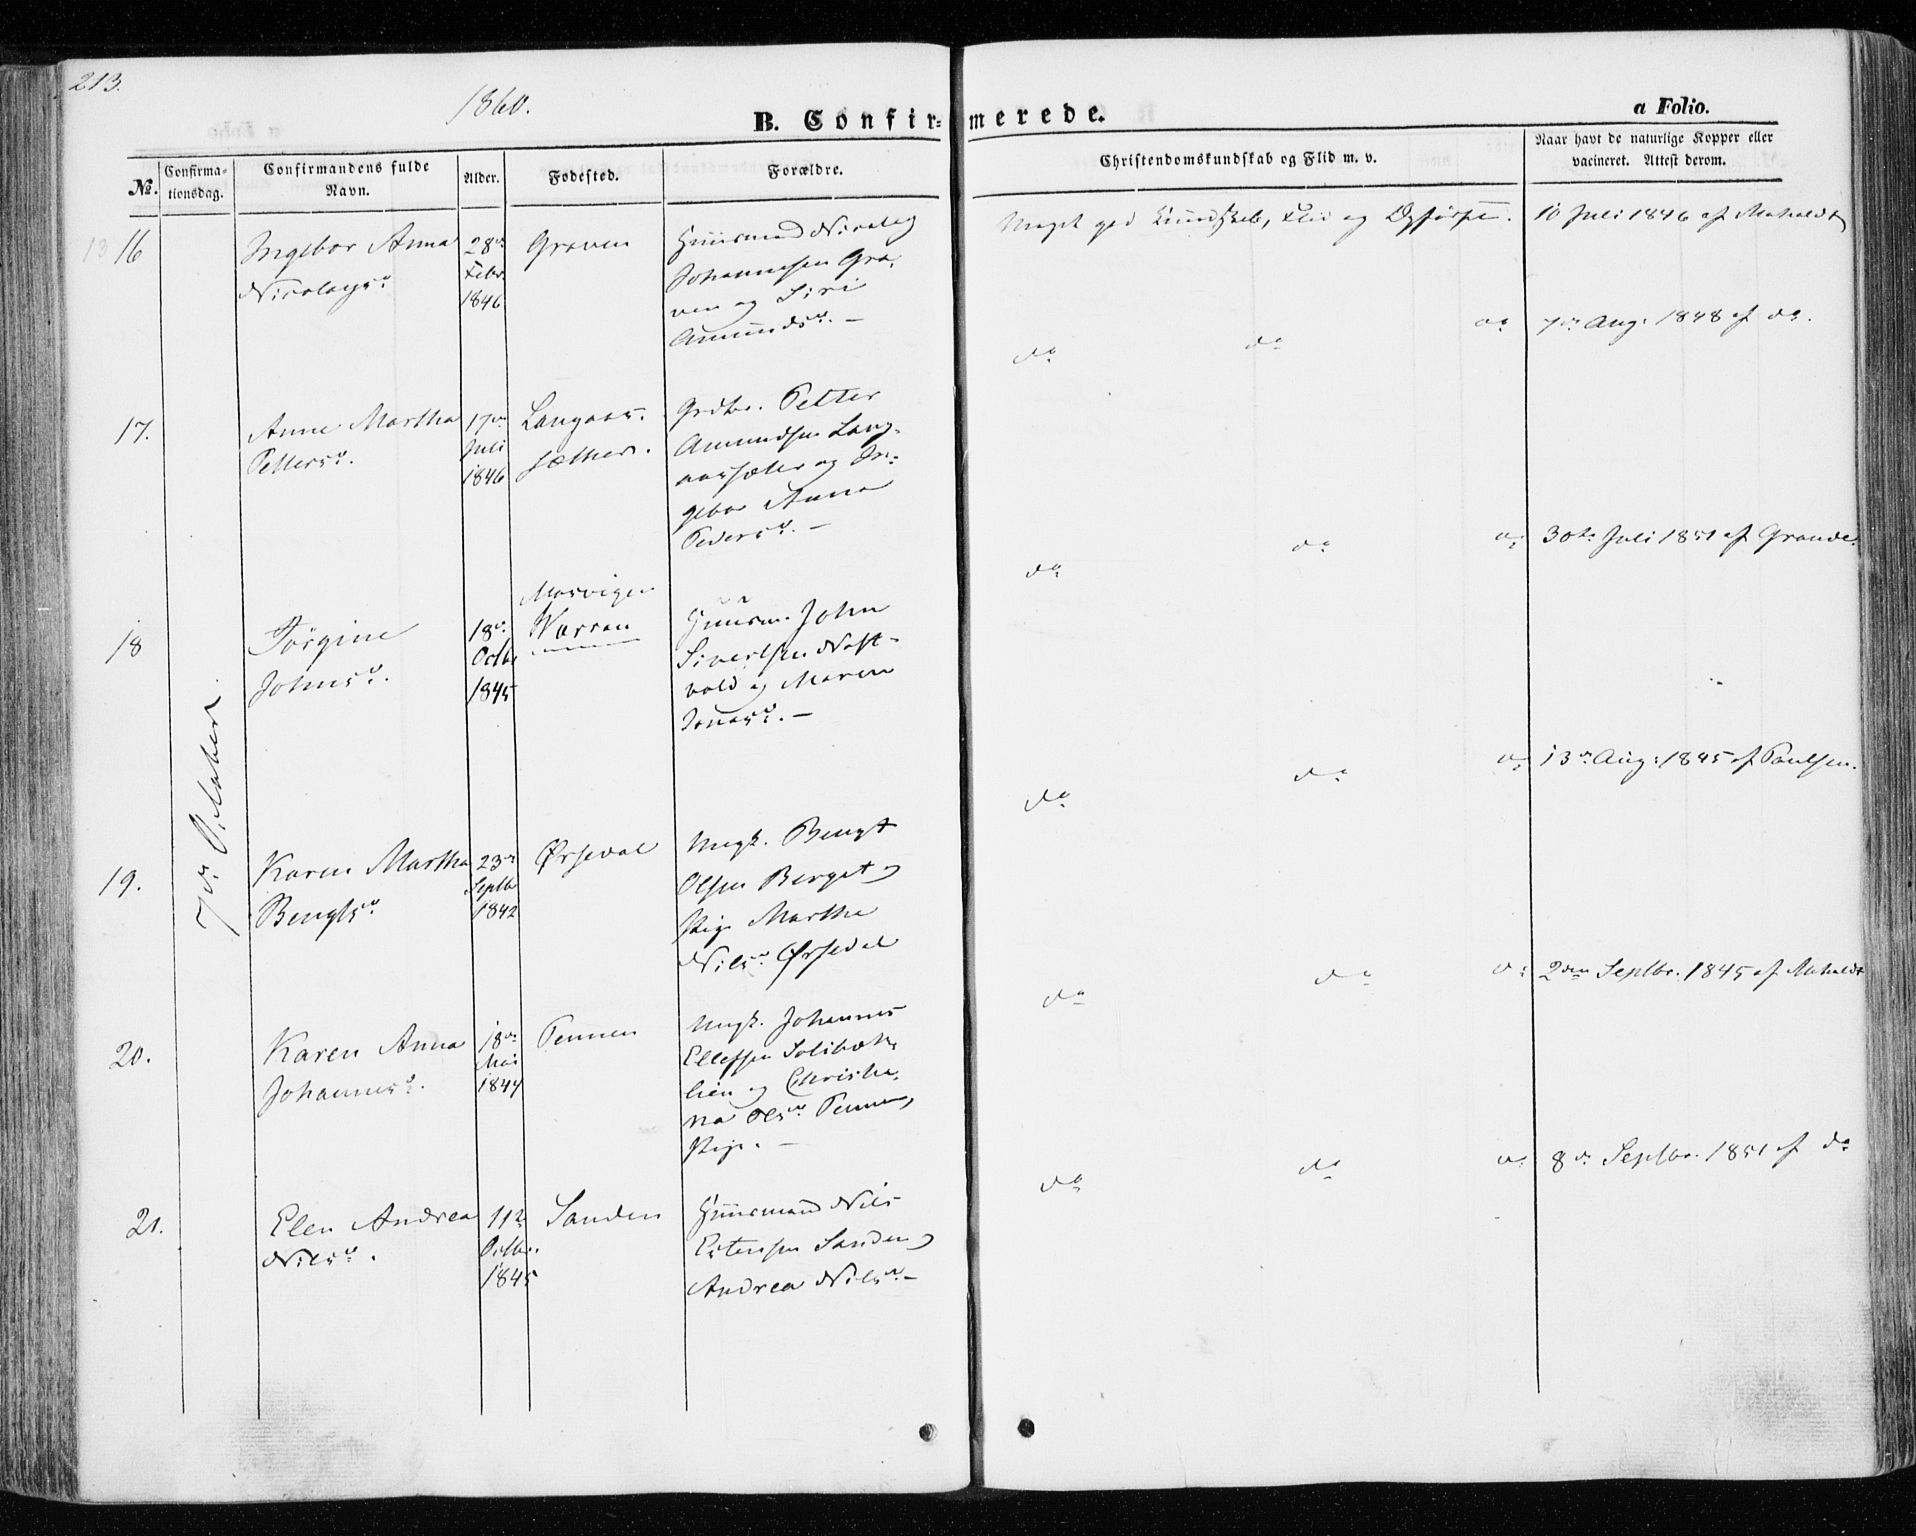 213.
1860.
B. Confirmerede.
a Folio.
No.
Confirmationsdag.
Confirmandens fulde Navn.
Alder.
Fødested.
Forældre.
Christendomskundskab og Flid m. v.
Naar havt de naturlige Kopper eller vacineret. Attest derom.
7de October
16
Ingebor Anna
Nicolaysd.
28de
Febr.
1846
Graven
Huusmand Nicolay
Johannesen Gra-
ven og Siri
Amundsd. –
Meget god Kundskab, Flid og Opførsel.
10 Juli 1846 af
17.
Anne Martha
Pettersd.
17de
Juli
1846
Langaas-
sæther.
Grdbr. Petter
Amundsen Lang-
aassæter og In-
gebor Anna
Pedersd. –
do do do
7de Aug. 1848 af do.
18
Jørgine
Johnsd.
18de
Octbr
1845
Mosvigen
Warran
Huusm. John
Sivertsen
vold og Maren
Jonasd. –
do do do
30te Juli 1851 af Grande.
19.
Karen Martha
Bengtsd.
23de
Septbr
1842
Ørsedal
Ungk. Bengt
Olsen Berget og
Pige Martha
Nilsd. Ørsedal
do do do
13de Aug: 1845 af Paulsen.
20.
Karen Anna
Johannesd.
18de
Mai
1844
Tennen
Ungk. Johannes
Ellefsen
lien og Christia-
na Olsd. Tennen,
Pige. –
do do do
2den Septbr. 1845 af
21.
Elen Andrea
Nilsd.
11te
Octbr.
1845
Sanden
Huusmand Nils
Estensen Sanden og
Andrea Nilsd. –
do do do
8de Septbr. 1851 af do